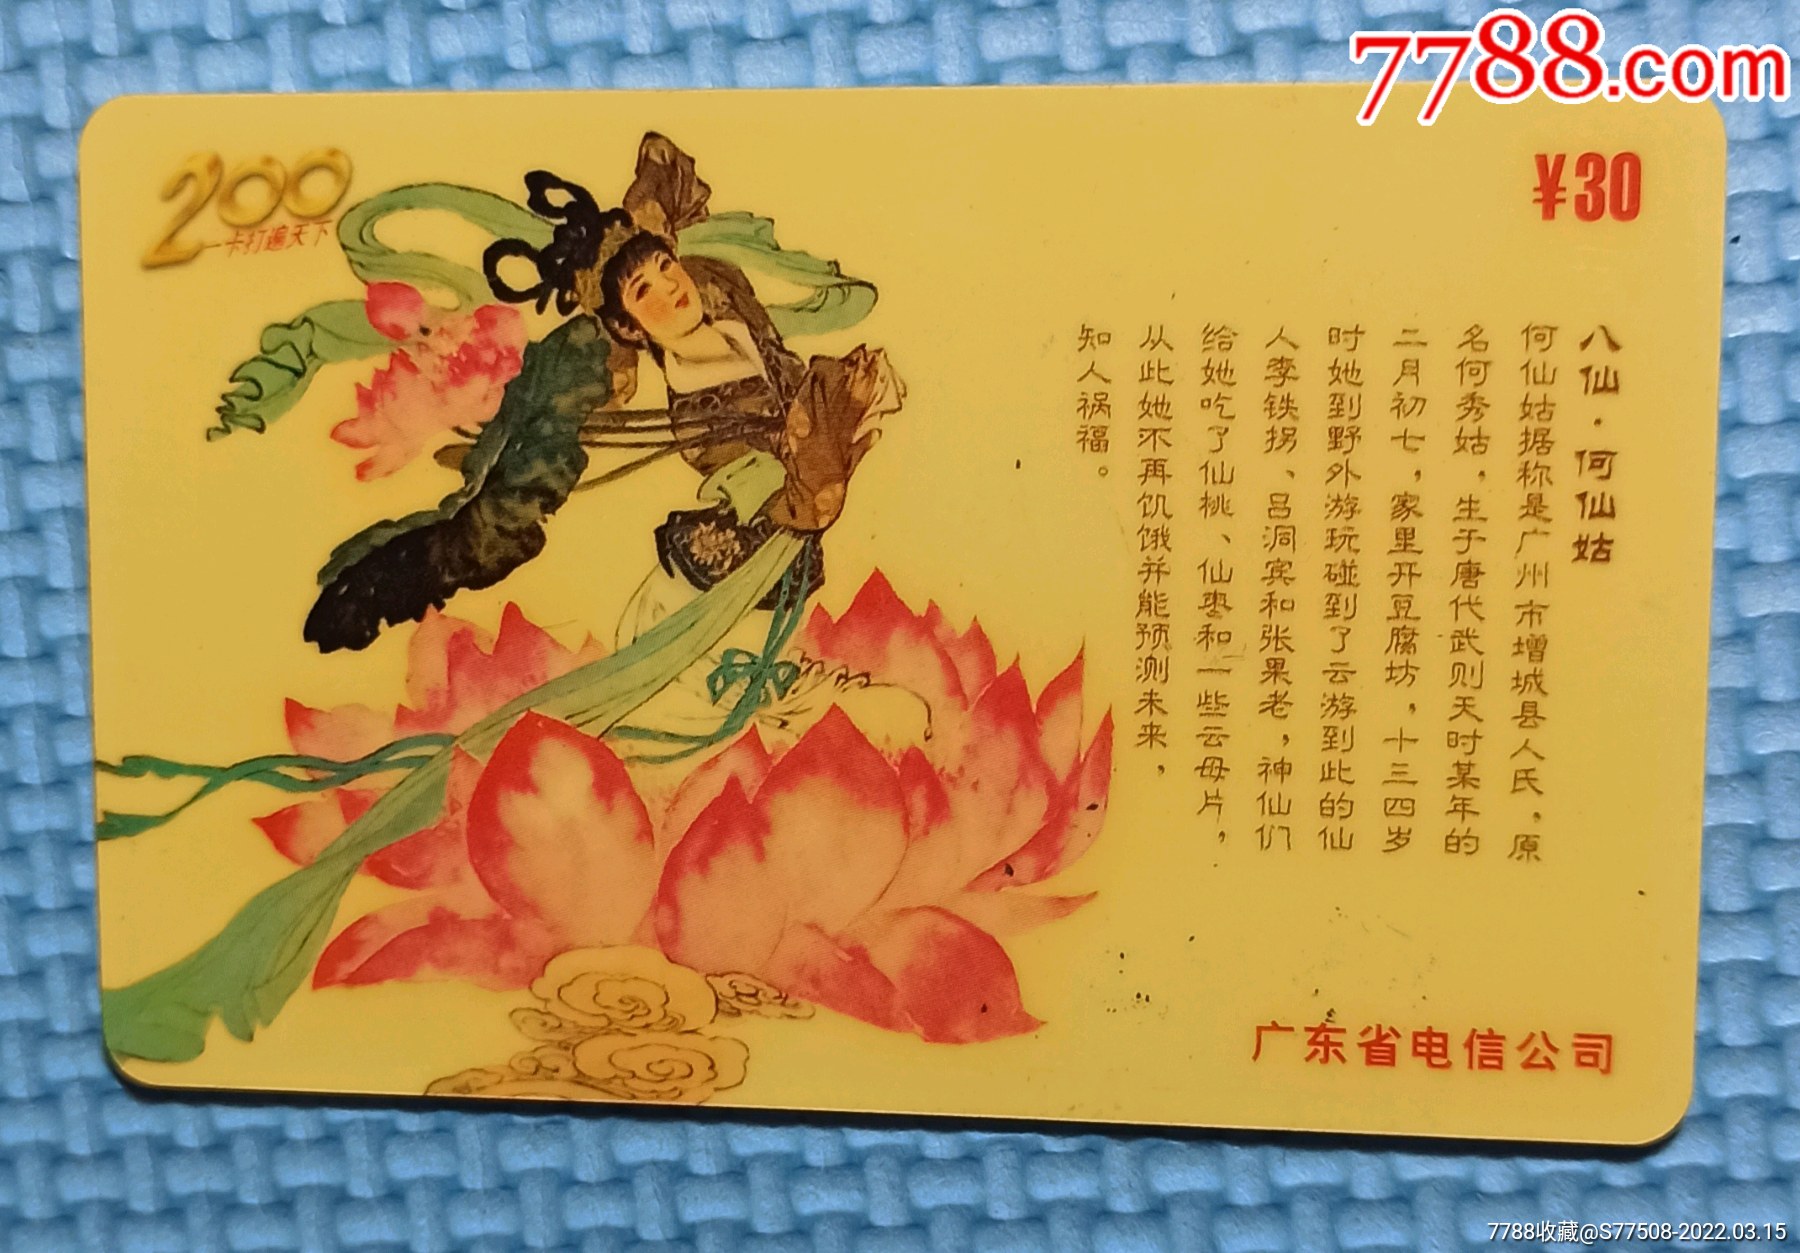 7788.com
200
一卡打遍天下
¥30
八仙·何仙姑
何仙姑据称是广州市增城县人氏，原
名何秀姑，生于唐代武则天时某年的
二月初七，家里开豆腐坊，十三四岁
时她到野外游玩碰到了云游到此的仙
人李铁拐、吕洞宾和张果老，神仙们
给她吃了仙桃、仙枣和一些云母片，
从此她不再饥饿并能预测未来，
知人祸福。
广东省电信公司
7788收藏@S77508-2022.03.15